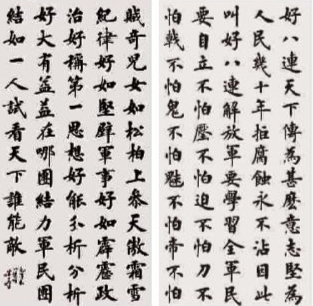 好八連天下傳為甚麼意志堅為
人民幾十年拒腐蝕永不沾因此
叫好八連解放軍要學習全軍民
要自立不怕壓不怕迫不怕刀不
怕戟不怕鬼不怕魅不怕帝不怕
賊奇兒女如松柏上參天傲霜雪
紀律好如堅壁軍事好如霹靂政
治好稱第一思想好能分析分析
好大有益益在哪團結力軍民團
結如一人試看天下誰能敵